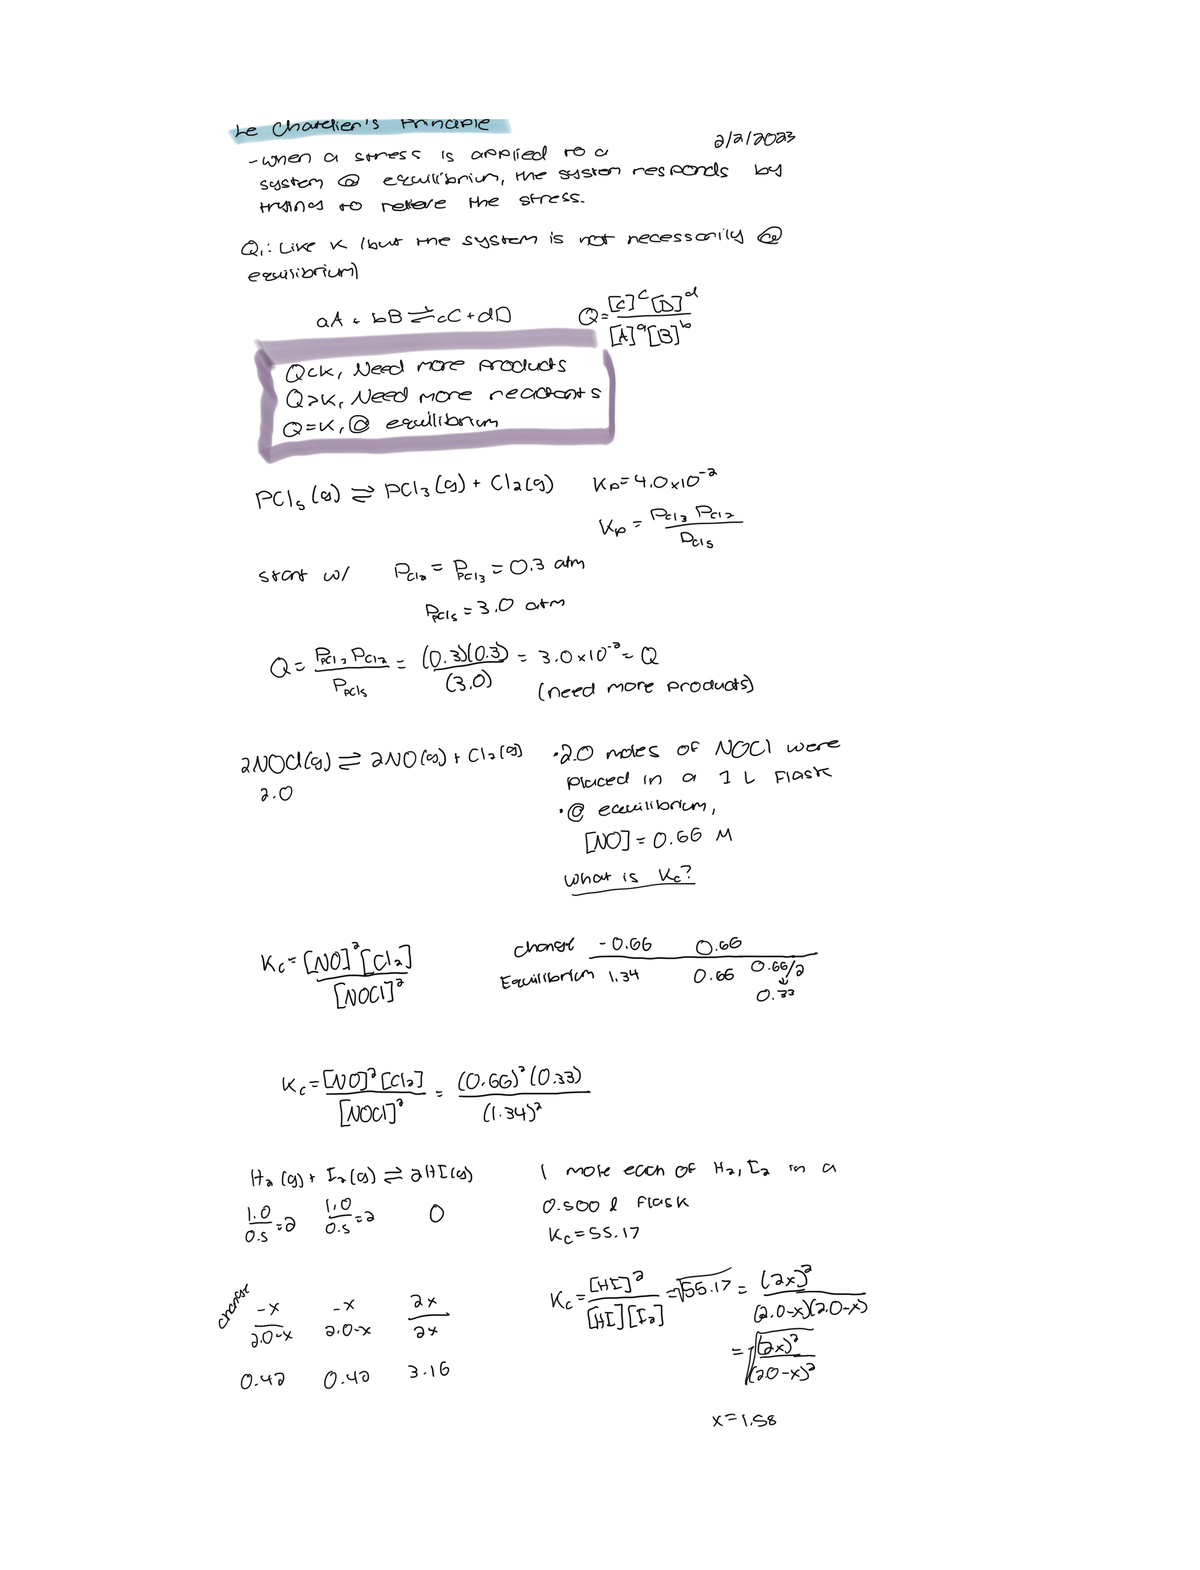 Le Chatelier's Principle
2/2/2023
- when a stress is applied to a
system @ equilibrium, the system responds by
trying to relieve the stress.
Q: Like K (but the system is not necessarily @
equilibrium)
aA + bB ⇌ cC + dD    Q = [C]^c [D]^d / [A]^a [B]^b
Q<K, Need more products
Q>K, Need more reactants
Q=K, @ equilibrium
PCl₅ (g) ⇌ PCl₃ (g) + Cl₂ (g)    Kp = 4.0x10⁻²
Kp = PCl₃ PCl₂ / PCl₅
start w/    P_Cl₂ = P_PCl₃ = 0.3 atm
P_PCl₅ = 3.0 atm
Q = P_PCl₃ P_Cl₂ / P_PCl₅ = (0.3)(0.3) / (3.0) = 3.0x10⁻² = Q
(need more products)
2NOCl(g) ⇌ 2NO(g) + Cl₂(g)    • 2.0 moles of NOCl were
placed in a 1 L flask
2.0
• @ equilibrium,
[NO] = 0.66 M
What is Kc?
change    -0.66    0.66
Kc = [NO]² [Cl₂] / [NOCl]²
Equilibrium    1.34    0.66    0.66/2
↓
0.33
Kc = [NO]² [Cl₂] / [NOCl]² = (0.66)² (0.33) / (1.34)²
H₂ (g) + I₂ (g) ⇌ 2HI(g)    1 mole each of H₂, I₂ in a
1.0/0.5 = 2    1.0/0.5 = 2    0    0.500 l flask
Kc = 55.17
Kc = [HI]² / [HI][I₂] = √55.17 = (2x)² / (2.0-x)(2.0-x)
change    -x    -x    2x
2.0-x    2.0-x    2x
= √(2x)² / (2.0-x)²
0.42    0.42    3.16
x = 1.58